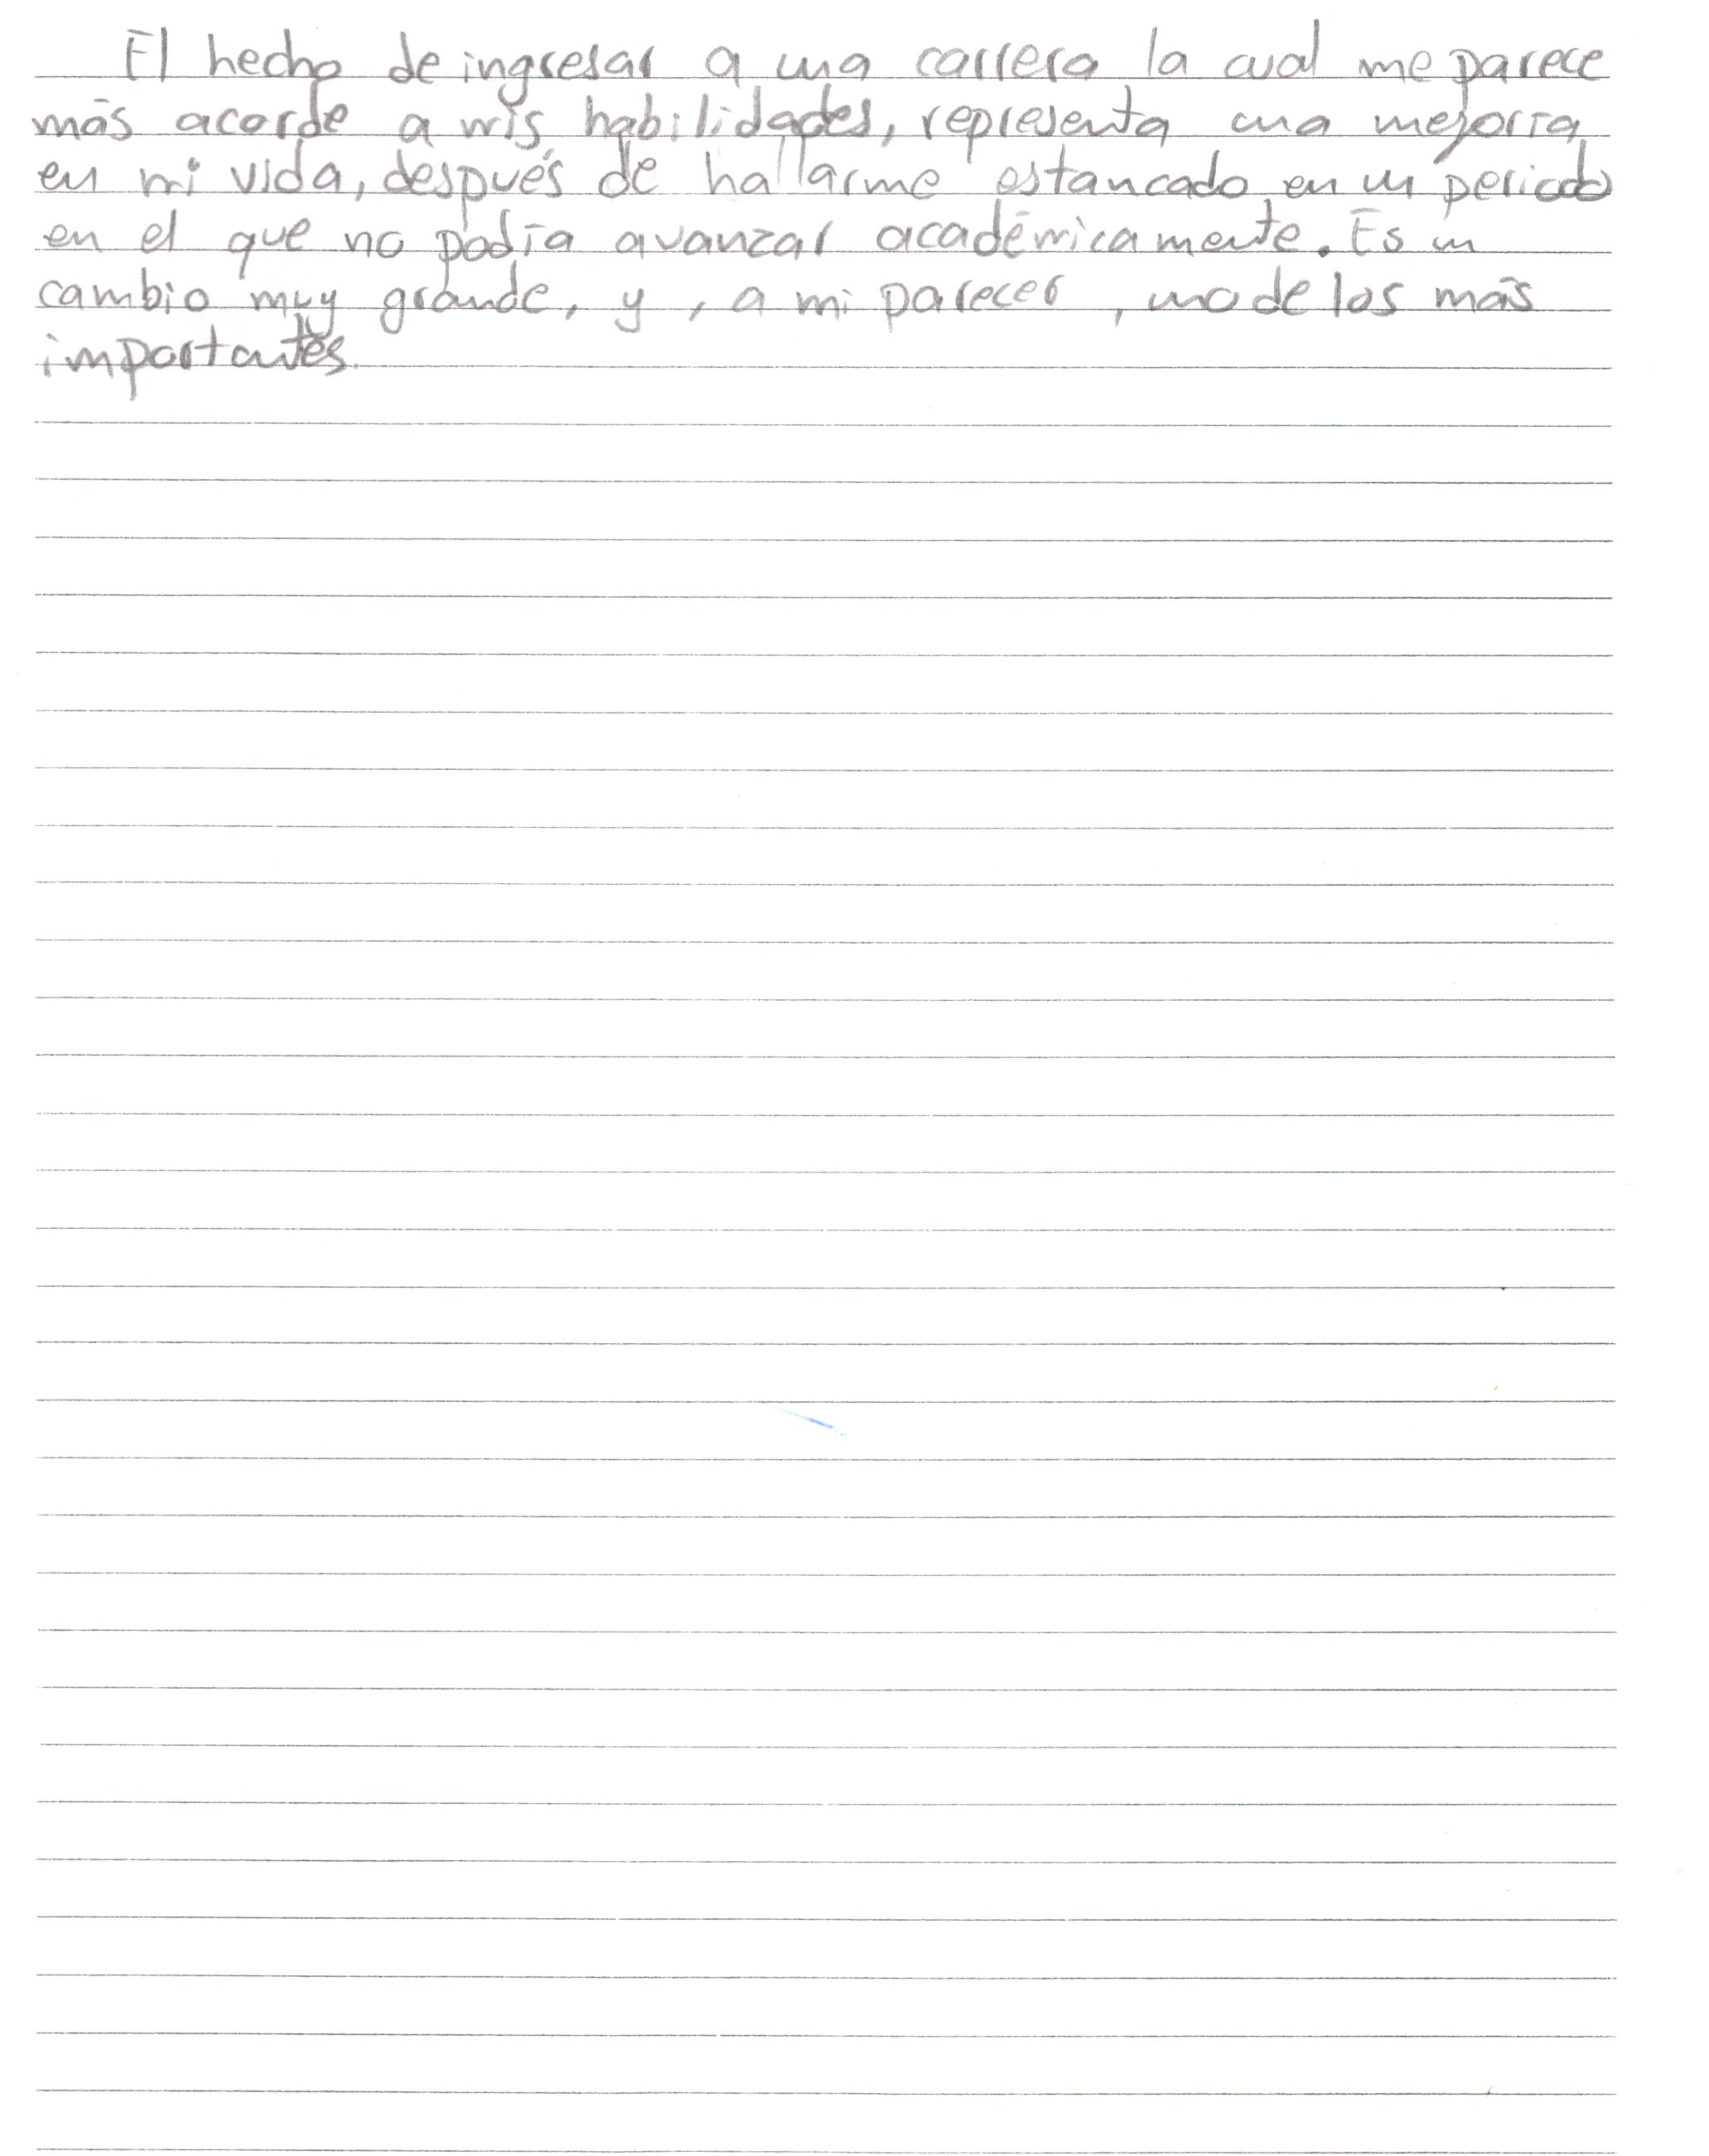 El hecho de ingresar a una carrera la cual me parece
más acorde a mis habilidades, representa una mejoría
en mi vida, después de hallarme estancado en un periodo
en el que no podía avanzar académicamente. Es un
cambio muy grande, y, a mi parecer, uno de los más
importantes.